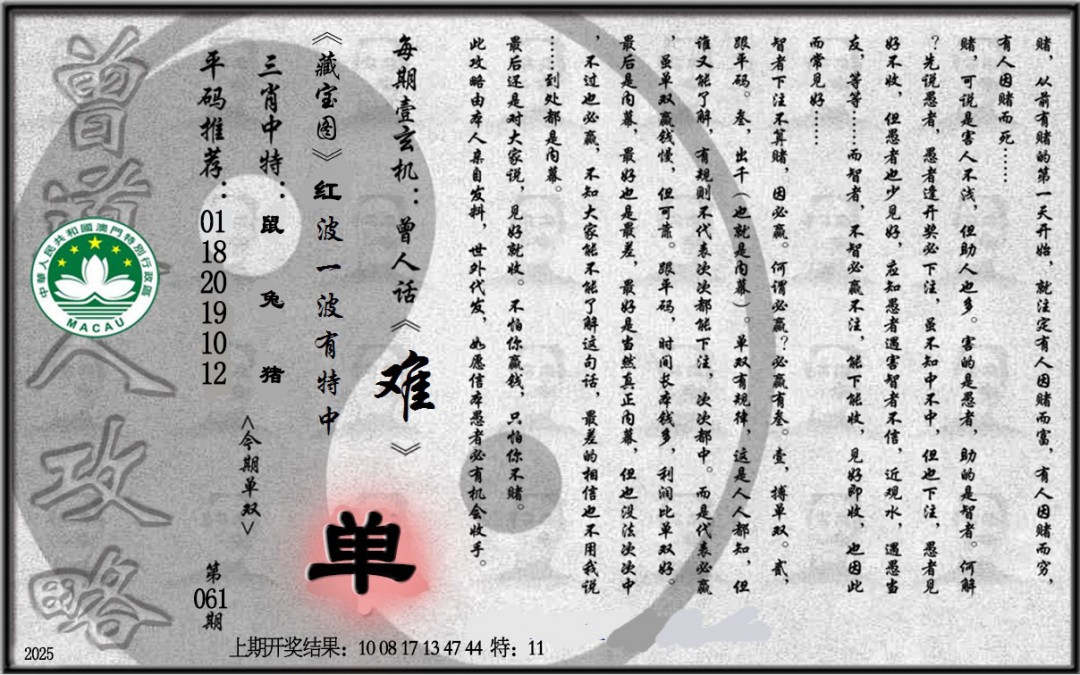 赌，从前有赌的第一天开始，就注定有人因赌而富，有人因赌而穷，
有人因赌而死……
赌，可说是害人不浅，但助人也多。害的是愚者，助的是智者。何解
？先说愚者，愚者逢开奖必下注，虽不知中不中，但也下注，愚者见
好不收，但愚者也少见好，应知愚者遇害智者不信，近观水，遇愚当
友，等等……而智者，不智必赢不注，能下能收，见好即收，也因此
而常见好……
智者下注不算赌，因必赢。何谓必赢？必赢有叁。壹，搏单双。贰，
跟平码。叁，出千（也就是内幕）。单双有规律，这是人人都知，但
谁又能了解，有规则不代表次次都能下注，次次都中。而是代表必赢
，虽单双赢钱慢，但可靠。跟平码，时间长本钱多，利润比单双好。
最后是内幕，最好也是最差，最好是当然真正内幕，但也没法次次中
，不过也必赢，不知大家能不能了解这句话，最差的相信也不用我说
……到处都是内幕。
最后还是对大家说，见好就收。不怕你赢钱，只怕你不赌。
此攻略由本人亲自发料，世外代发，如愿信本愚者必有机会收手。
每期壹玄机：曾人话《难》
《藏宝图》红波一波有特中
单
三肖中特：鼠 兔 猪
<今期单双>
平码推荐：01 18 20 19 10 12
第061期
曾道人攻略
中華人民共和國澳門特別行政區
MACAU
上期开奖结果：10 08 17 13 47 44 特：11
2025